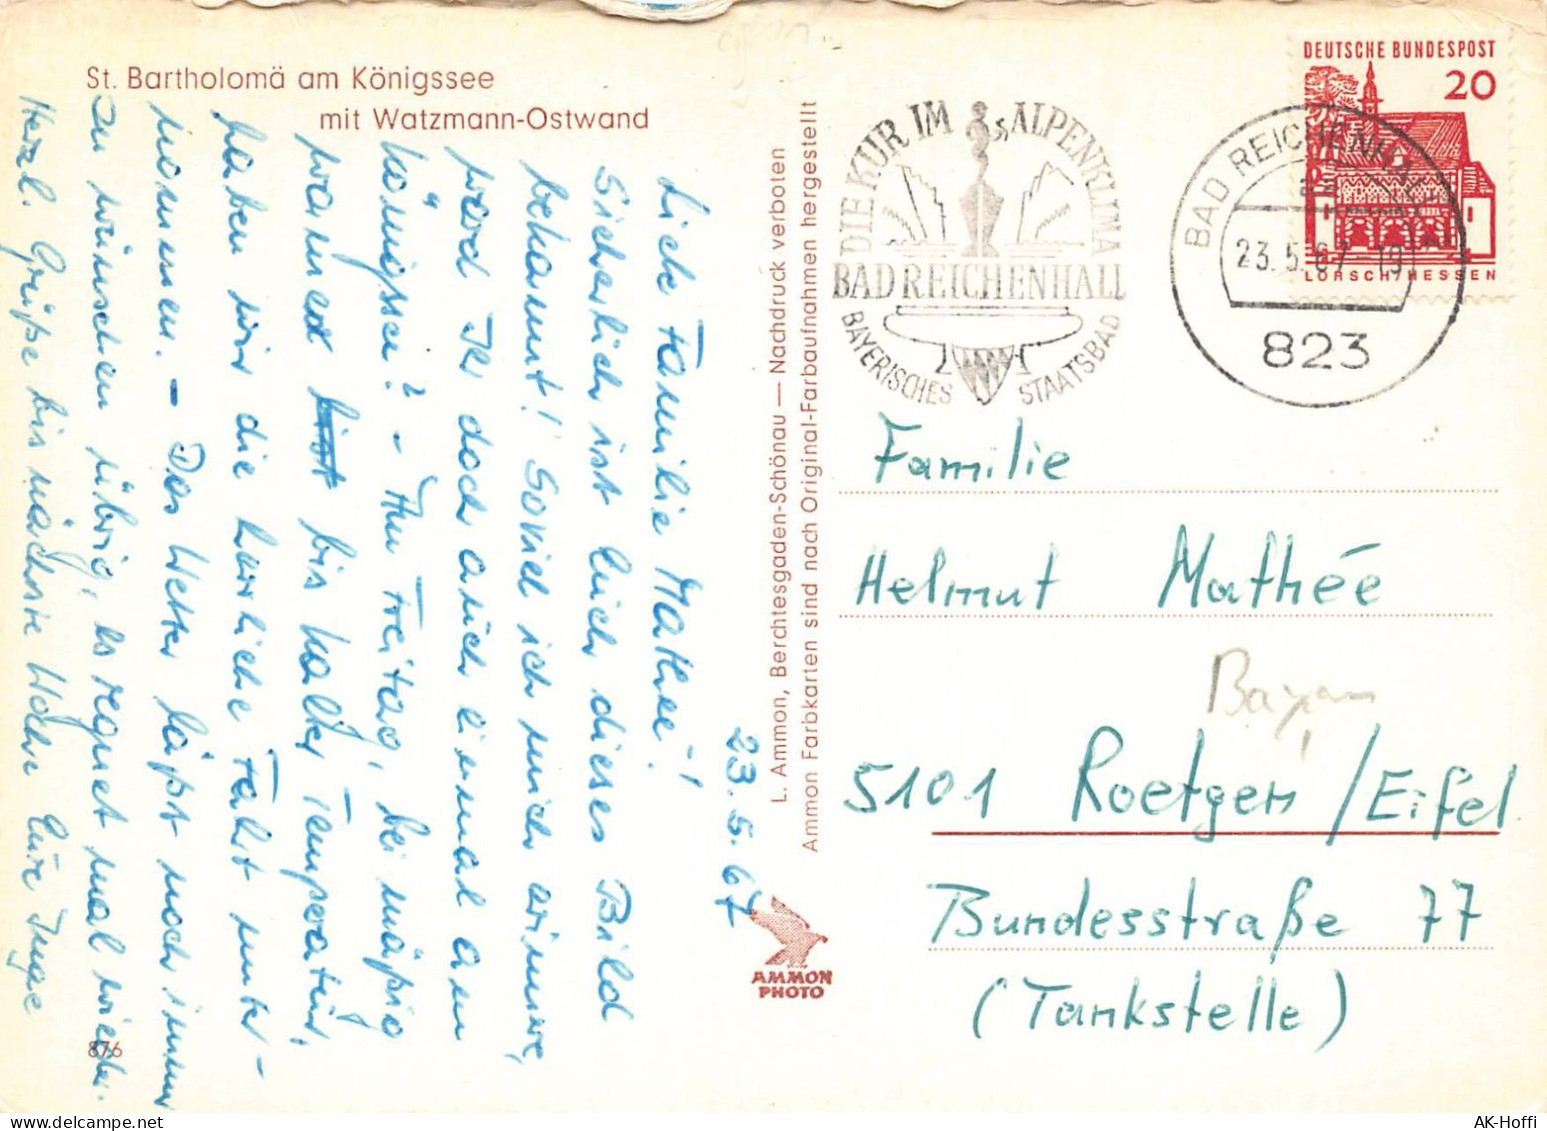 St. Bartholomä am Königssee
mit Watzmann-Ostwand
23.5.67
Liebe Familie Mathée!
Sicherlich ist Euch dieses Bild
bekannt! Soviel ich mich erinnere,
ward Ihr doch auch einmal am
Königssee? - Am Freitag, bei mäßig
warmer bis kalter Temperatur,
haben wir die herrliche Fahrt unter-
nommen. - Das Wetter läßt noch immer
zu wünschen übrig, es regnet mal wieder.
Herzl. Grüße bis nächste Woche Eure Inge
876
L. Ammon, Berchtesgaden-Schönau — Nachdruck verboten
Ammon Farbkarten sind nach Original-Farbaufnahmen hergestellt
AMMON
PHOTO
DIE KUR IM ALPENKLIMA
BAD REICHENHALL
BAYERISCHES STAATSBAD
BAD REICHENHALL
23.5.67-19
823
DEUTSCHE BUNDESPOST
20
LORSCH/HESSEN
Familie
Helmut Mathée
Bayern
5101 Roetgen/Eifel
Bundesstraße 77
(Tankstelle)
AK-Hoffi